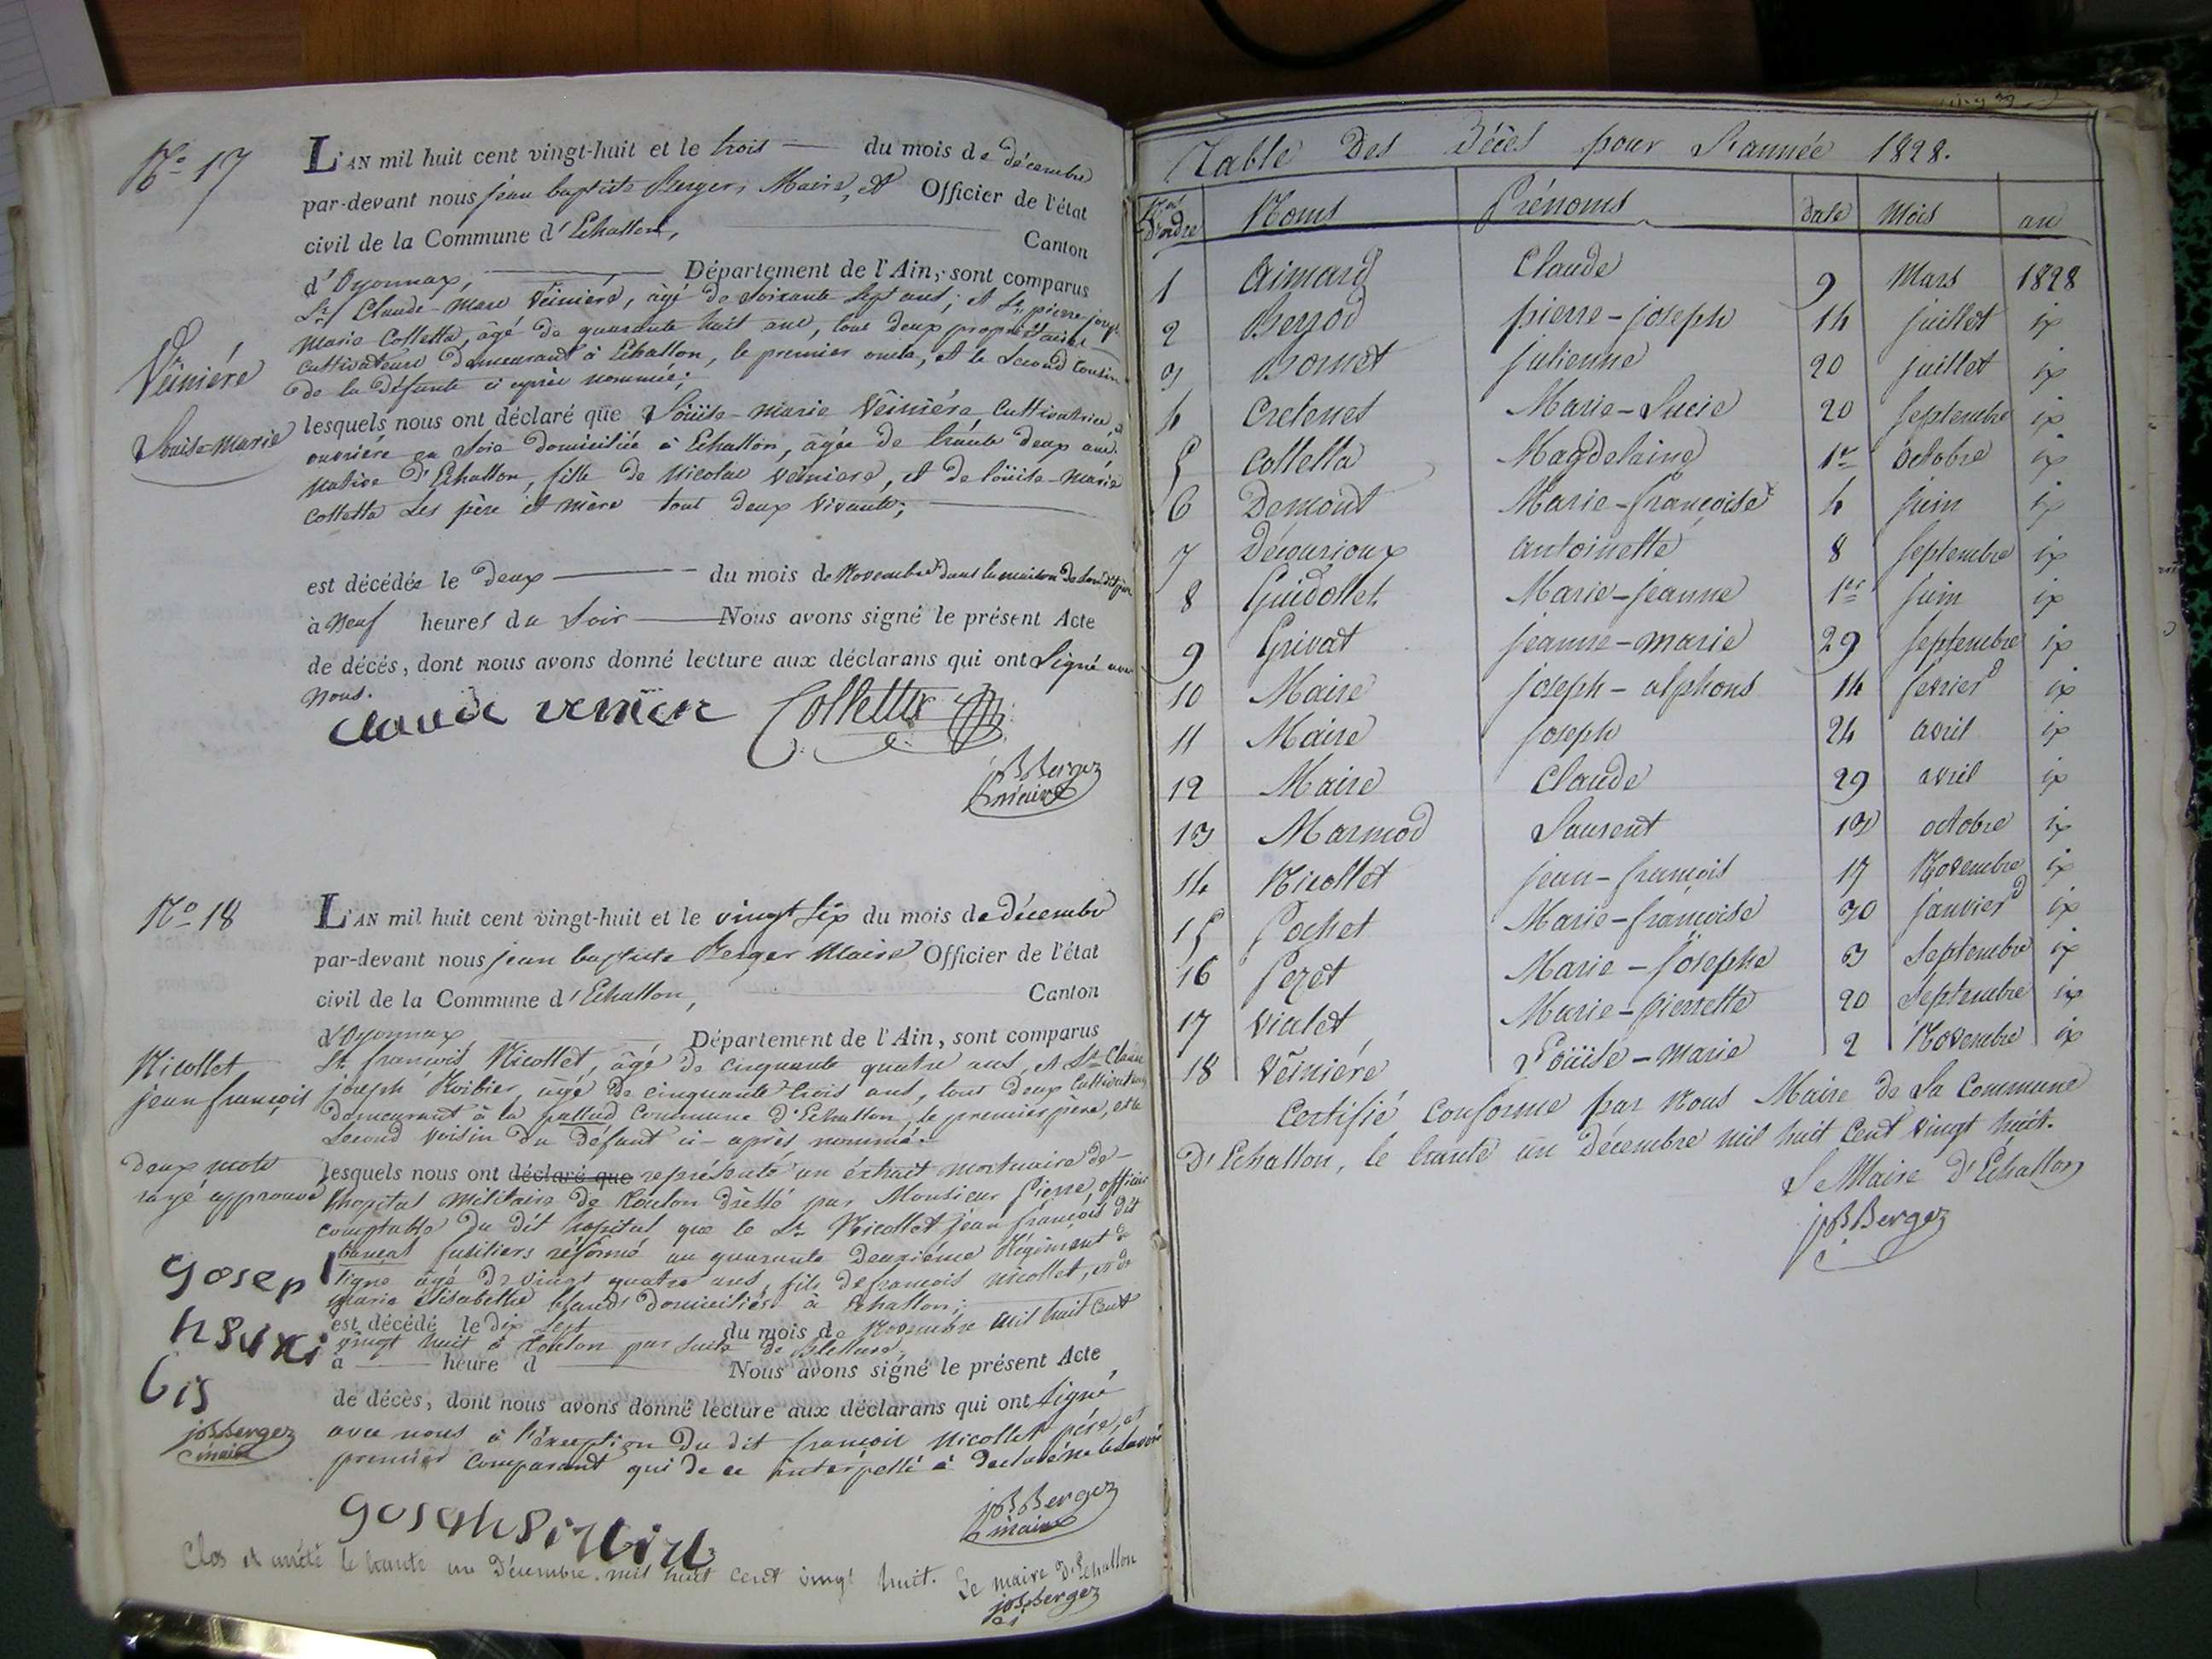 No 17
L'AN mil huit cent vingt-huit et le trois du mois de décembre
par-devant nous jean baptiste Berger, Maire, et Officier de l'état
civil de la Commune d'Echallon, Canton
d'Oyonnax, Département de l'Ain, sont comparus
Sr Claude-Marie Veiniére, âgé de soixante sept ans, et Sr pierre joseph
Marie Colletta, âgé de quarante huit ans, tous deux propriétaires
cultivateurs demeurant à Echallon, le premier oncle, et le second cousin
de la défunte ci après nommée;
Veiniére
Louise-marie
lesquels nous ont déclaré que Loüise-marie Veiniére cultivatrice, et
ouvriére en soie domiciliée à Echallon, âgée de trente deux ans
native d'Echallon, fille de Nicolas veiniere, et de loüise-marie
Colletta ses père et mère tout deux vivants;
est décédée le deux du mois de Novembre dans la maison de son dit père
à neuf heures du soir Nous avons signé le présent Acte
de décès, dont nous avons donné lecture aux déclarans qui ont signé avec
nous.
claude Colletta
jBBerger
maire
No 18
L'AN mil huit cent vingt-huit et le vingt six du mois de décembre
par-devant nous jean baptiste Berger Maire Officier de l'état
civil de la Commune d'Echallon, Canton
d'Oyonnax Département de l'Ain, sont comparus
Nicollet
jean françois
Sr françois Nicollet, âgé de cinquante quatre ans, et Sr Claude
joseph âgé de cinquante trois ans, tous deux cultivateurs
demeurant à la pallud Commune d'Echallon, le premier père, et le
second voisin du défunt ci-après nommé.
deux mots
rayé approuvé
lesquels nous ont déclaré que représenté un éxtrait mortuaire de
l'hopital militaire de Toulon dressé par Monsieur Pierre, officier
comptable du dit hopital que le Sr Nicollet jean françois dit
fusiliers réformé au quarante deuxiéme Régiment de
ligne âgé de vingt quatre ans, fils de françois nicollet, et de
marie élisabethe domiciliés à Echallon;
est décédé le dix sept du mois de Novembre mil huit cent
vingt huit à Toulon par suite de
à heure d Nous avons signé le présent Acte
de décès, dont nous avons donné lecture aux déclarans qui ont signé
avec nous à l'éxception du dit françois Nicollet père, et
premier comparant qui de ce interpellé à declaré ne le savoir
gosep
bis
jBBerger
maire
jBBerger
maire
Clos et arrêté le trante un Décembre mil huit cent vingt huit. Le maire D'Echallon
jBBerger
Table Des Décès pour L'année 1828.
Nos D'ordre Noms Prénoms date Mois an
1 Aimard Claude 9 Mars 1828
2 Berrod pierre-joseph 14 juillet ix
3 Bornet julienne 20 juillet ix
4 Cretenet Marie-Lucie 20 septembre ix
5 Colletta Magdelaine 1er octobre ix
6 Demont Marie-françoise 4 juin ix
7 Décourioux antoinette 8 septembre ix
8 Guidollet Marie-jeanne 1er juin ix
9 Grivat jeanne-marie 29 septembre ix
10 Maire joseph-alphons 14 fevrier ix
11 Maire joseph 24 avril ix
12 Maire Claude 29 avril ix
13 Marmod Laurent 13 octobre ix
14 Nicollet jean-françois 17 Novembre ix
15 Pochet Marie-françoise 30 janvier ix
16 Pezet Marie-josephe 3 septembre ix
17 vialet Marie-pierrette 20 septembre ix
18 Veiniére Loüise-marie 2 Novembre ix
Certifié conforme par Nous Maire de la Commune
D'Echallon, le trante un Décembre mil huit cent vingt huit.
Le Maire D'Echallon
jBBerger